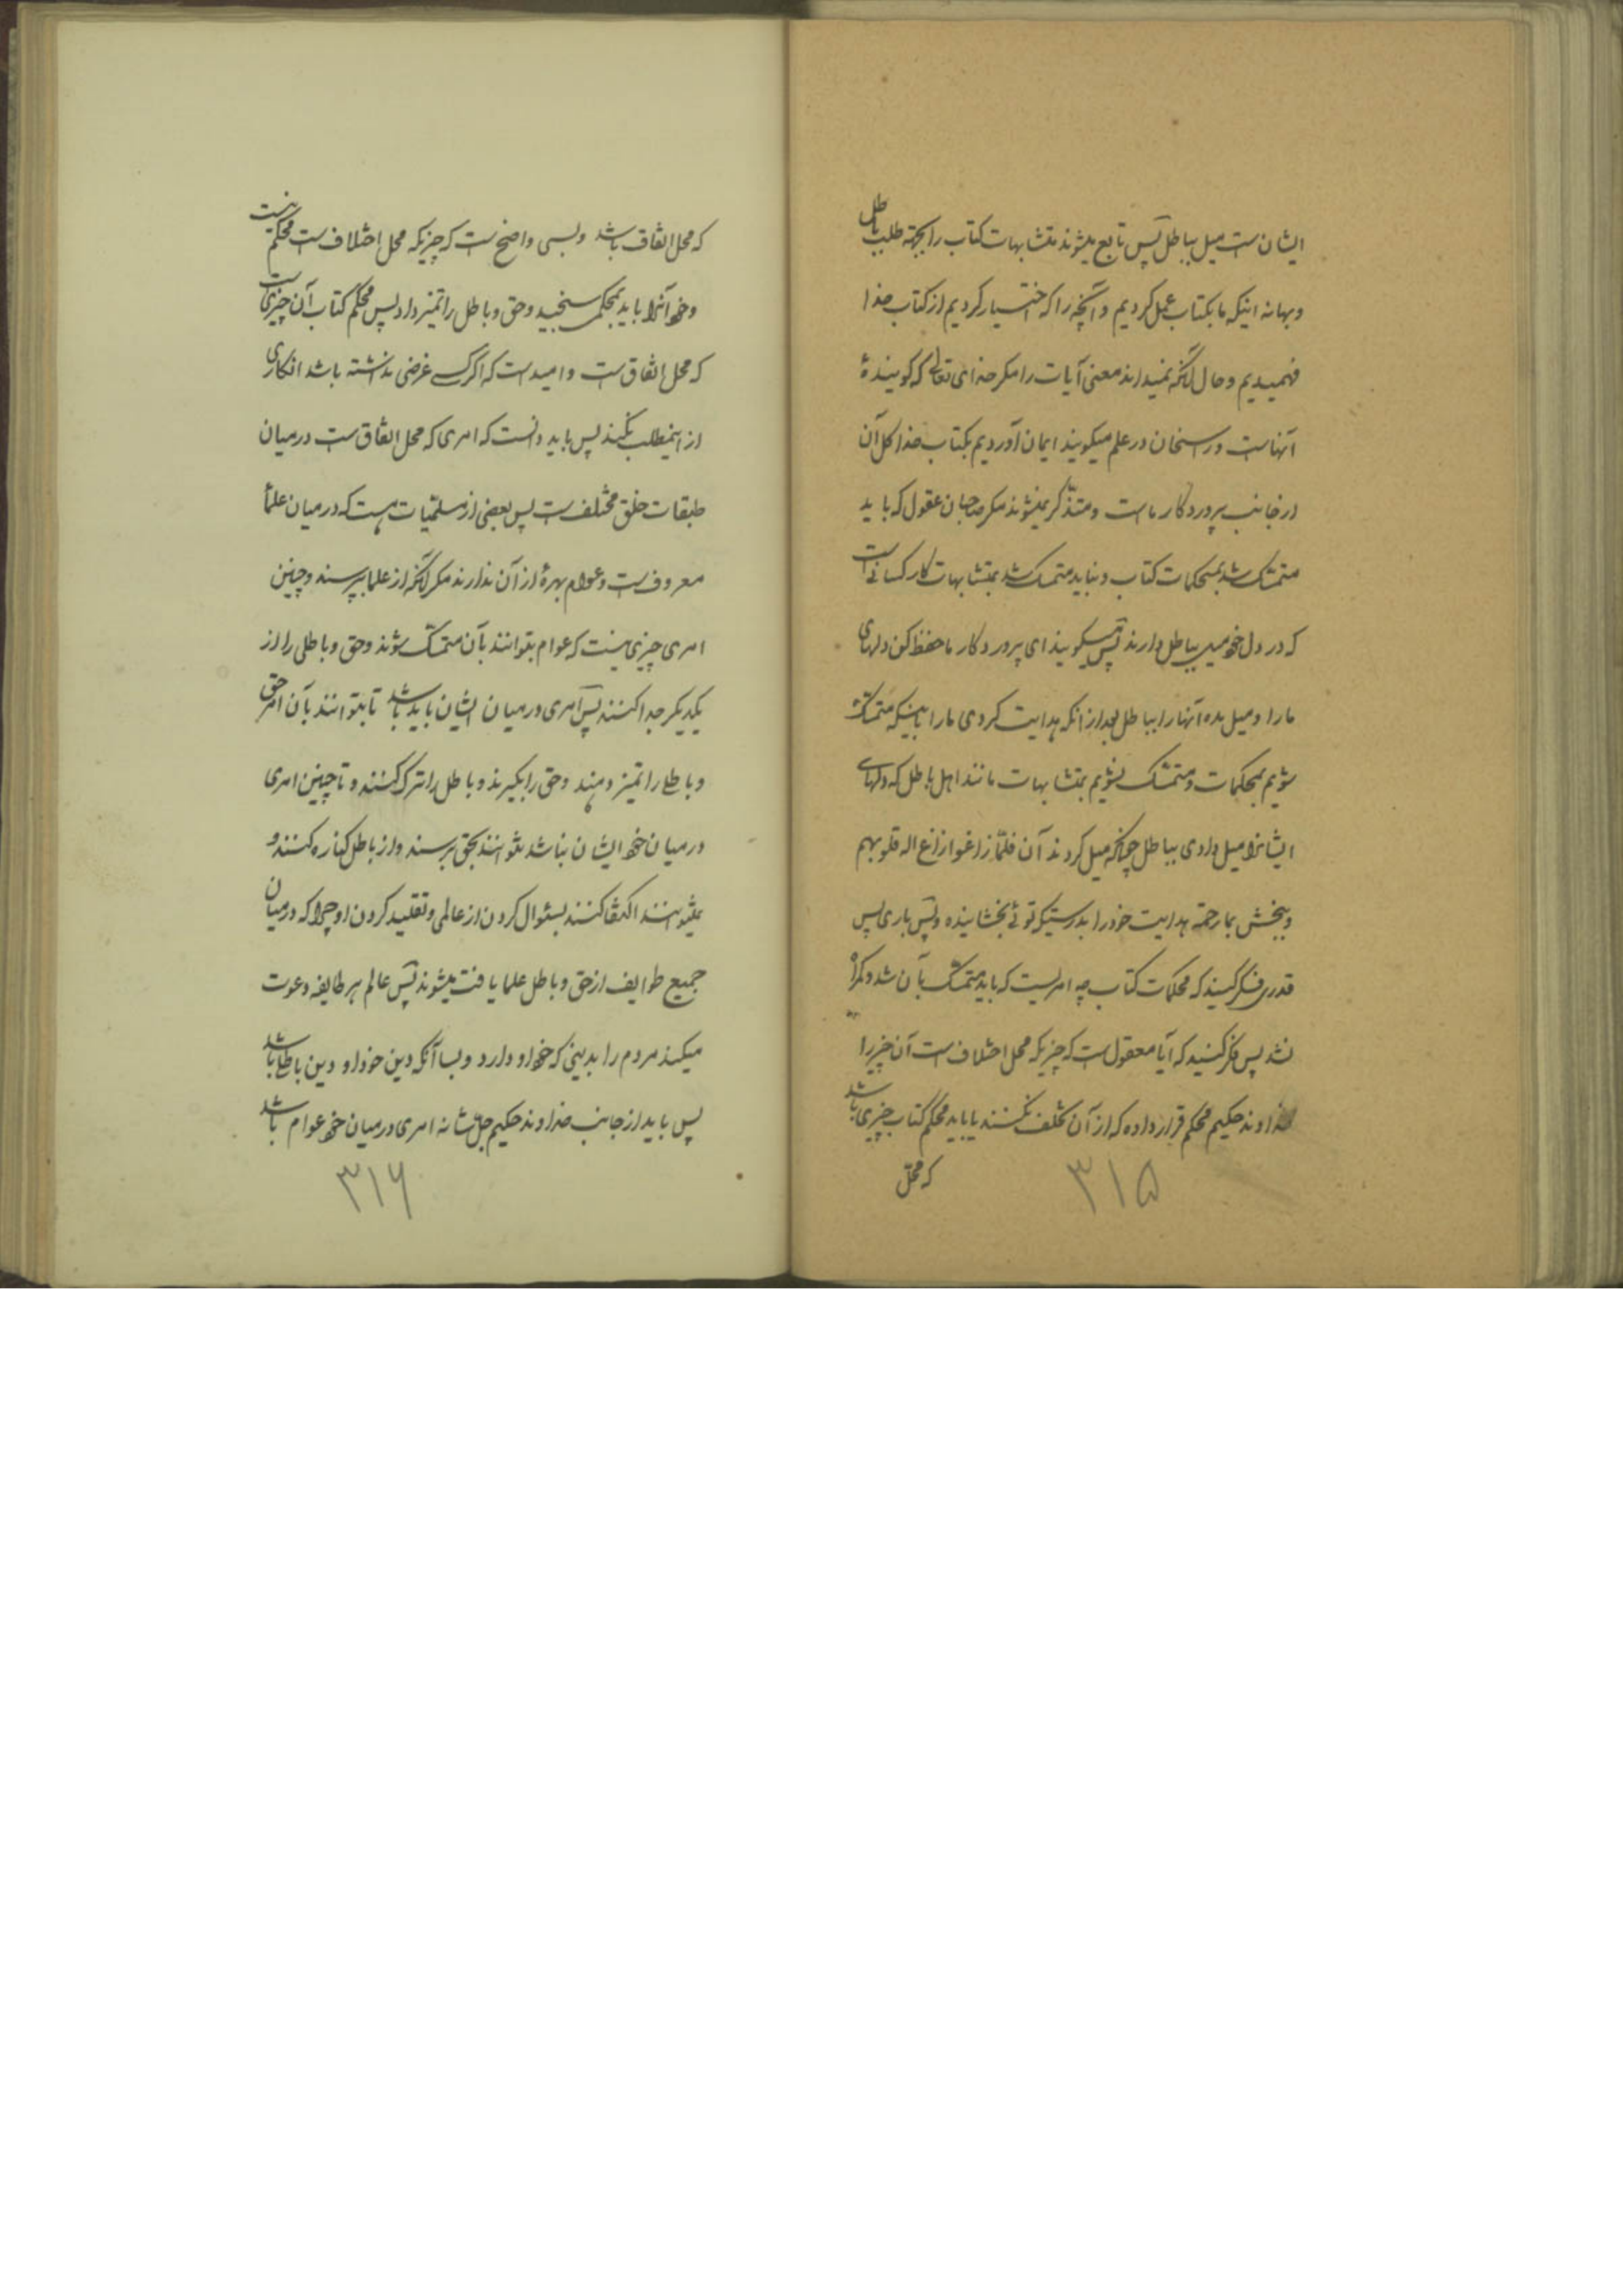 ایشان‌ست میل بباطل پس تابع میشوند متشابهات کتاب را بجهة طلب باطل
و بهانه اینکه ما بکتاب عمل کردیم و آنچه را که اختیار کردیم از کتاب خدا
فهمیدیم و حال آنکه نمیدانند معنی آیات را مکر خدای تعالی که کویندهٔ
آنهاست و راسخان در علم میکویند ایمان آوردیم بکتاب خدا کل آن
از جانب پروردکار ماست و متذکر نمیشوند مکر صاحبان عقول که باید
متمسک شد بمحکمات کتاب و نباید متمسک شد بمتشابهات کار کسانی‌ست
که در دل خود میل بباطل دارند پس میکویند ای پروردکار ما حفظ کن دلهای
ما را و میل مده آنها را بباطل بعد از انکه هدایت کردی ما را باینکه متمسک
شویم بمحکمات و متمسک نشویم بمتشابهات مانند اهل باطل که دلهای
ایشانرا میل دادی بباطل چنانکه میل کردند آن فلمّا زاغوا ازاغ اله قلوبهم
و ببخش بما رحمة هدایت خود را بدرستیکه توئی بخشاینده و پس باری پس
قدری فکر کنید که محکمات کتاب چه امریست که باید متمسک بآن شد و کمراه
نشد پس فکر کنید که آیا معقول‌ست که چیزیکه محل اختلاف‌ست آن چیز را
خداوند حکیم محکم قرار داده که از آن تخلف نکنند یا باید محکم کتاب چیزی باشد
که محلّ
۳۱۵
که محل اتفاق باشد و بسی واضح‌ست که چیزیکه محل اختلاف‌ست محکم نیست
و خود آنرا باید بمحکمی سنجید و حق و باطل را تمیز داد پس محکم کتاب آن چیزی‌ست
که محل اتفاق‌ست و امیدست که اکر کسی غرضی نداشته باشد انکاری
از اینمطلب نکند پس باید دانست که امری که محل اتفاق‌ست در میان
طبقات خلق مختلف‌ست پس بعضی از مسلمیات هست که در میان علما
معروف‌ست و عوام بهرهٔ از آن ندارند مکر آنکه از علما بپرسند و چنین
امری چیزی نیست که عوام بتوانند بآن متمسک شوند و حق و باطلی را از
یکدیکر جدا کنند پس امری در میان ایشان باید باشد تا بتوانند بآن امر حق
و باطل را تمیز دهند و حق را بکیرند و باطل را ترک کنند و تا چنین امری
در میان خود ایشان نباشد نتوانند بحق برسند و از باطل کناره کنند و
نمیتوانند اکتفا کنند بسئوال کردن از عالمی و تقلید کردن او چرا که در میان
جمیع طوایف از حق و باطل علما یافت میشوند پس عالم هر طایفه دعوت
میکند مردم را بدینی که خود او دارد و بسا آنکه دین خود او دین باطل باشد
پس باید از جانب خداوند حکیم جلّ شانه امری در میان خود عوام باشد
۳۱۶